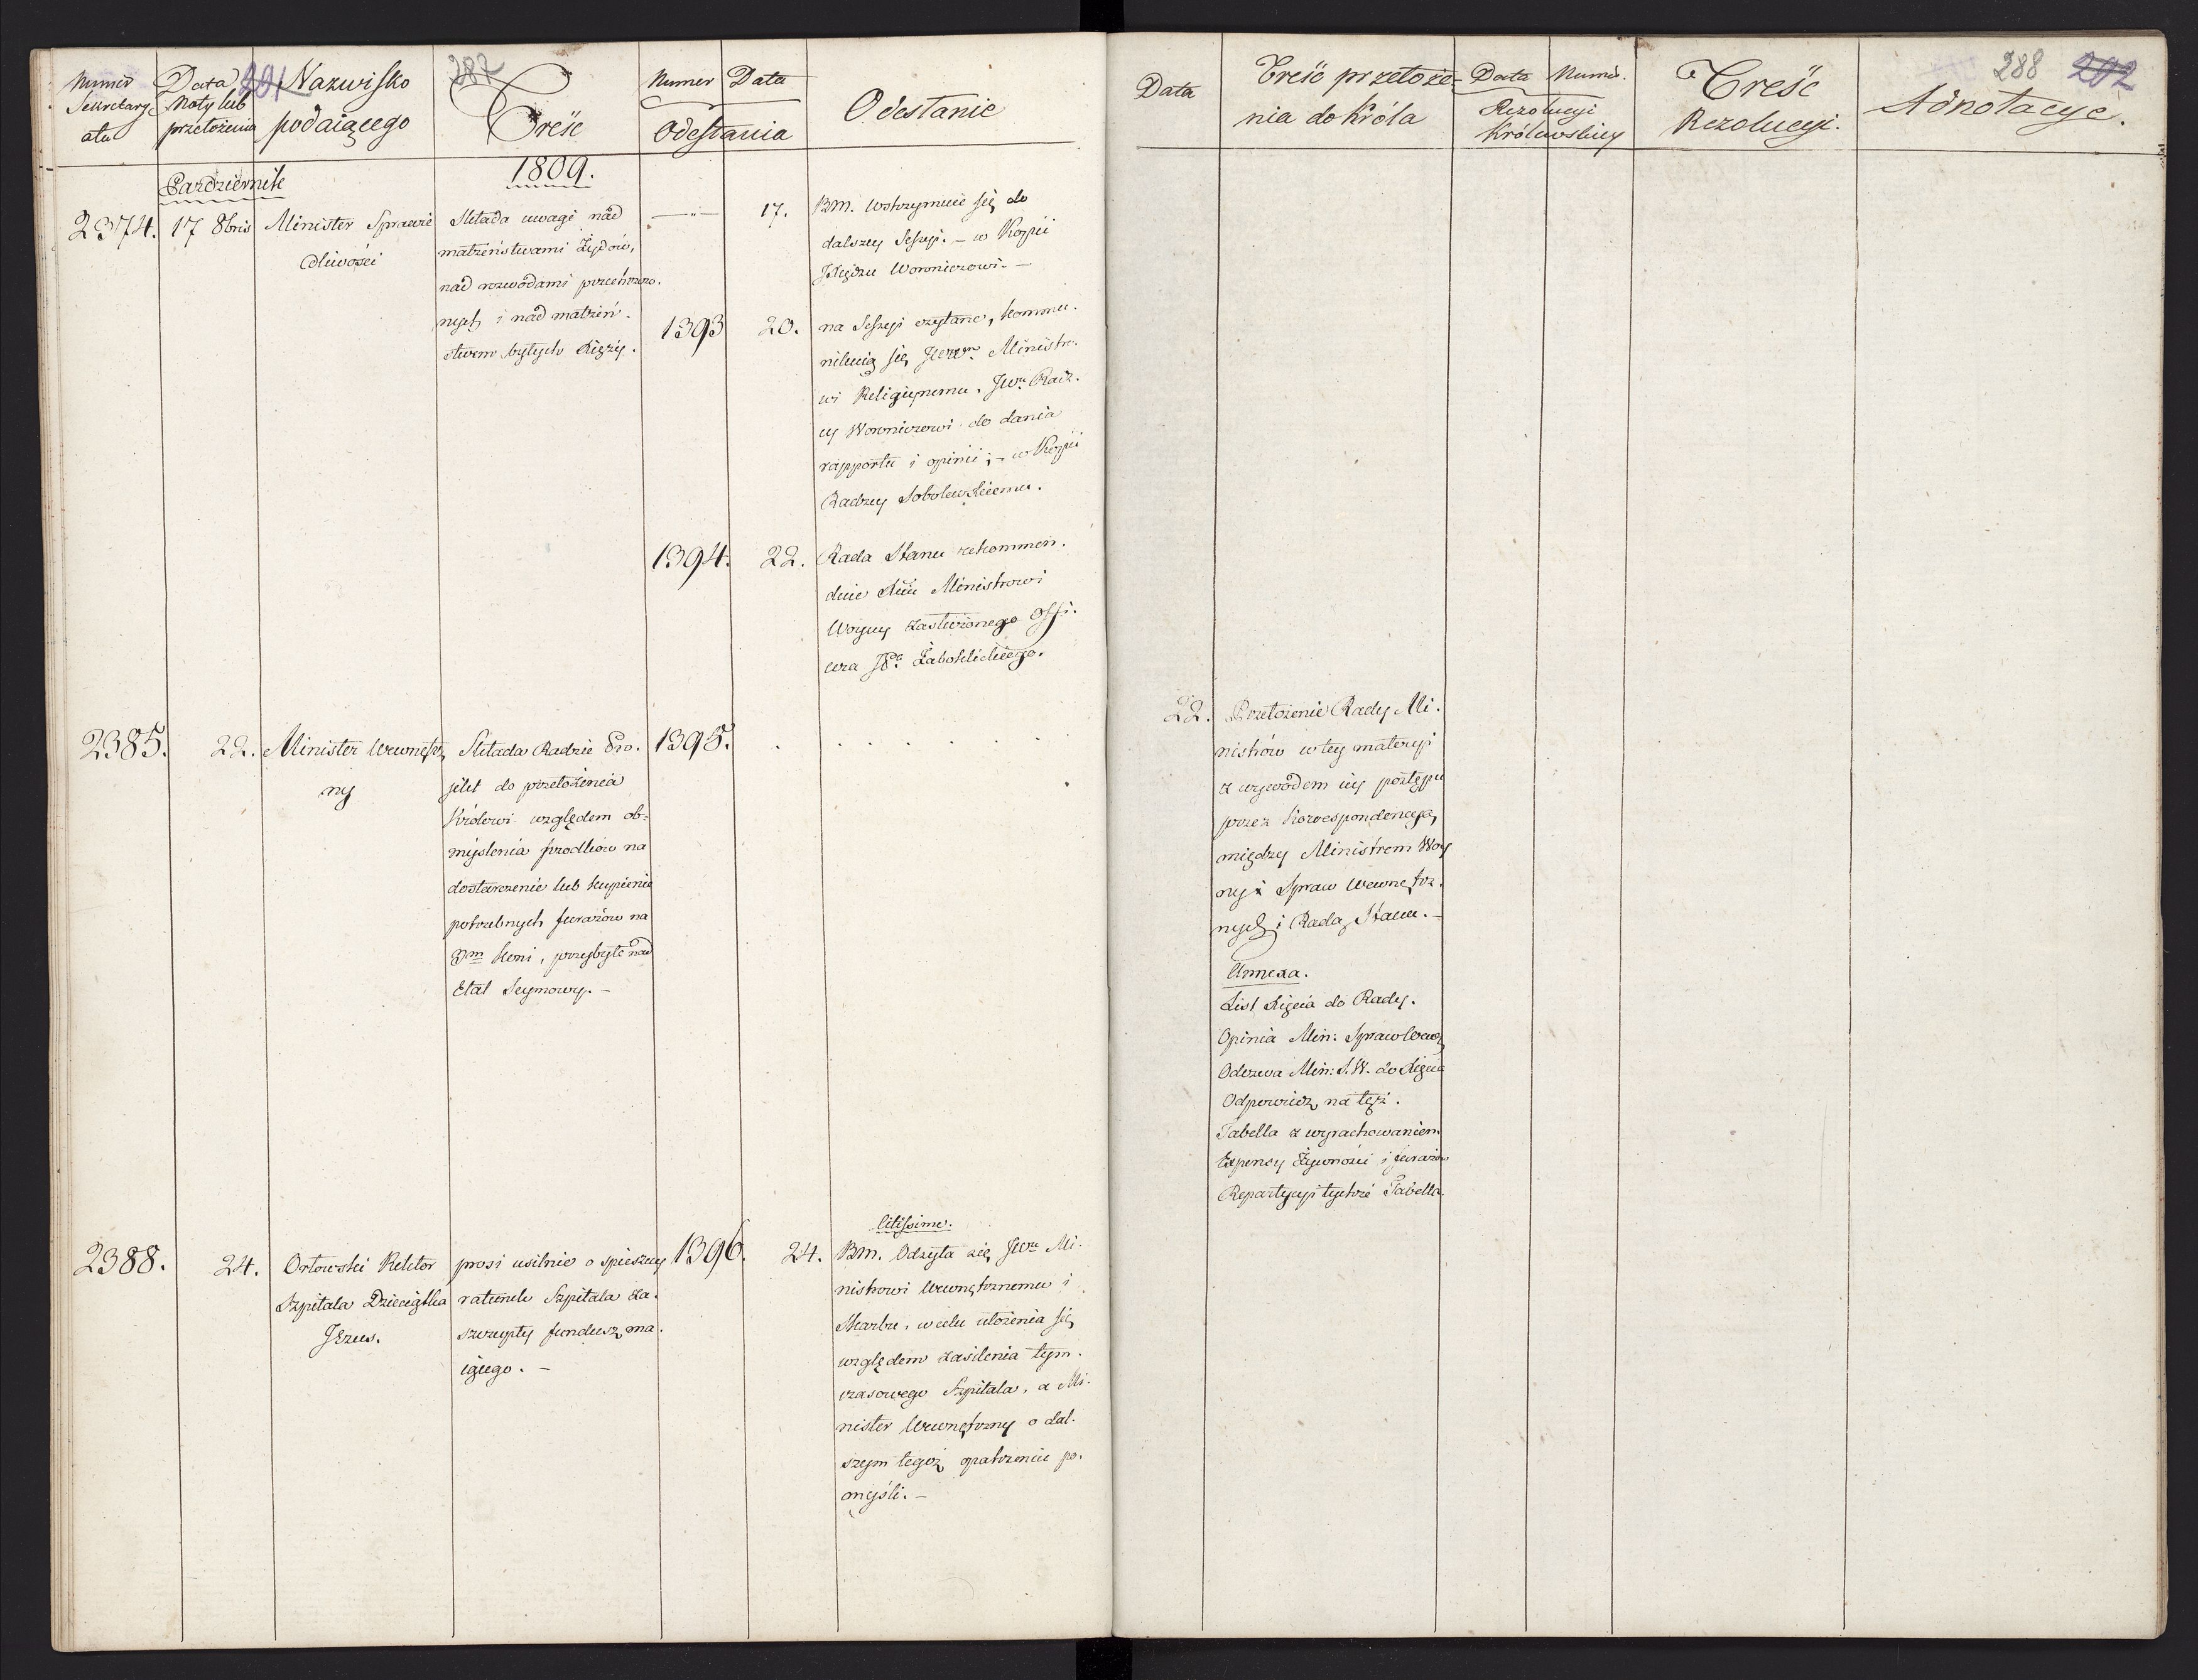 Numer Sekretary atu
Data Noty lub przełożenia
201
Nazwisko podaiącego
287
Treść
Numer Data
Odesłania
Odesłanie
Pazdziernik
1809.
2374. 17 8bris
Minister Sprawie
dliwości
Składa uwagi nad
małzeństwami Żydów,
nad rozwodami
nych i nad małżeń.
stwem byłych Xięży.
17.
Bm. Wstrzymuie się do
dalszey Sessyi. – w Kopii
Xiędzu Woroniczowi. –
1393 20.
na Sessyi czytane, kommu.
nikuią się JWmu Ministro.
wi Religiynemu, JWu Radz.
cy Woroniczowi do dania
rapportu i opinii; – w Kopii
Radzcy Sobolewskiemu.
1394. 22.
Rada Stanu rekommen.
duie Xciu Ministrowi
Woyny zasłużonego Offi.
cera JPa Żaboklickiego.
2385. 22.
Minister Wewnętrz
ny
Składa Radzie Pro.
jekt do przełożenia
Królowi względem ob=
myślenia środków na
dostarczenie lub kupienie
potrzebnych furażów na
3m koni, przybyłe nad
Etat Seymowy. –
1395. . . . . . . .
2388. 24.
Orłowski Rektor
Szpitala Dzieciątka
Jezus.
prosi usilnie o spieszny
ratunek Szpitala za.
szczupły fundusz ma.
iącego. –
1396. 24.
Citissime.
Bm. Odsyła się JWu Mi.
nistrowi Wewnętrznemu i
Skarbu, w celu ułożenia się
względem zasilenia tym.
czasowego Szpitala, a Mi.
nister Wewnętrzny o dal.
szym tegoż opatrzeniu po.
myśli. –
Data
Treść przełoże=
nia do Króla
Data Numer.
Rezolucyi
Królewskiey
Treść
Rezolucyi.
288 202
Adnotacye.
22.
Przełożenie Rady Mi.
nistrów w tey materyi
z wywodem iey postępu
przez Korrespondencyą
między Ministrem Woy
ny i Spraw Wewnętrz.
nych i Radą Stanu. –
Annexa.
List Xięcia do Rady.
Opinia Min: Spraw Wewn
Odezwa Min: S.W. do Xięcia
Odpowiedź na tęż.
Tabella z wyrachowaniem
Expensy Żywności i furażów
Repartycyi tychże Tabella.